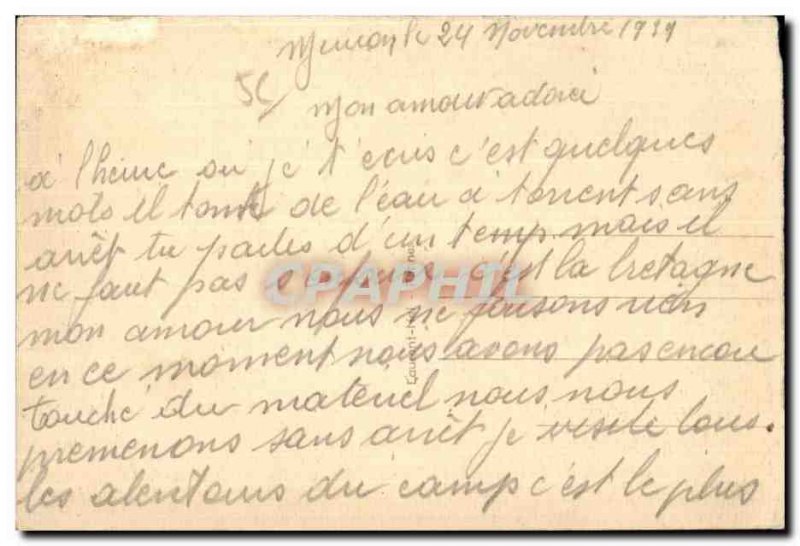 le 24 Novembre 1939
Mon amour adoré
à l'heure ou je t'ecris c'est quelques
mots il tombe de l'eau à torrent sans
arrêt tu parles d'un temp mais il
ne faut pas c'est la bretagne
mon amour nous ne faisons rien
en ce moment nous avons pas encore
touché du materiel nous nous
promenons sans arrêt je visite tous
les alentours du camp c'est le plus
CPAPHIL